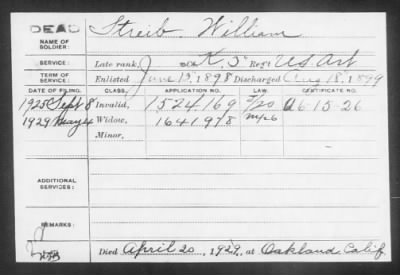 DEAD
NAME OF SOLDIER: Streib, William
SERVICE: Late rank, Co. K, 3 Reg't U.S. Art
TERM OF SERVICE: Enlisted June 13, 1898 Discharged Aug 18, 1899
DATE OF FILING. CLASS. APPLICATION NO. LAW. CERTIFICATE NO.
1925 Sept 8 Invalid, 1524.169
1929 May 4 Widow, 1641.978
Minor,
ADDITIONAL SERVICES:
REMARKS:
Died April 20, 1929, at Oakland Calif.